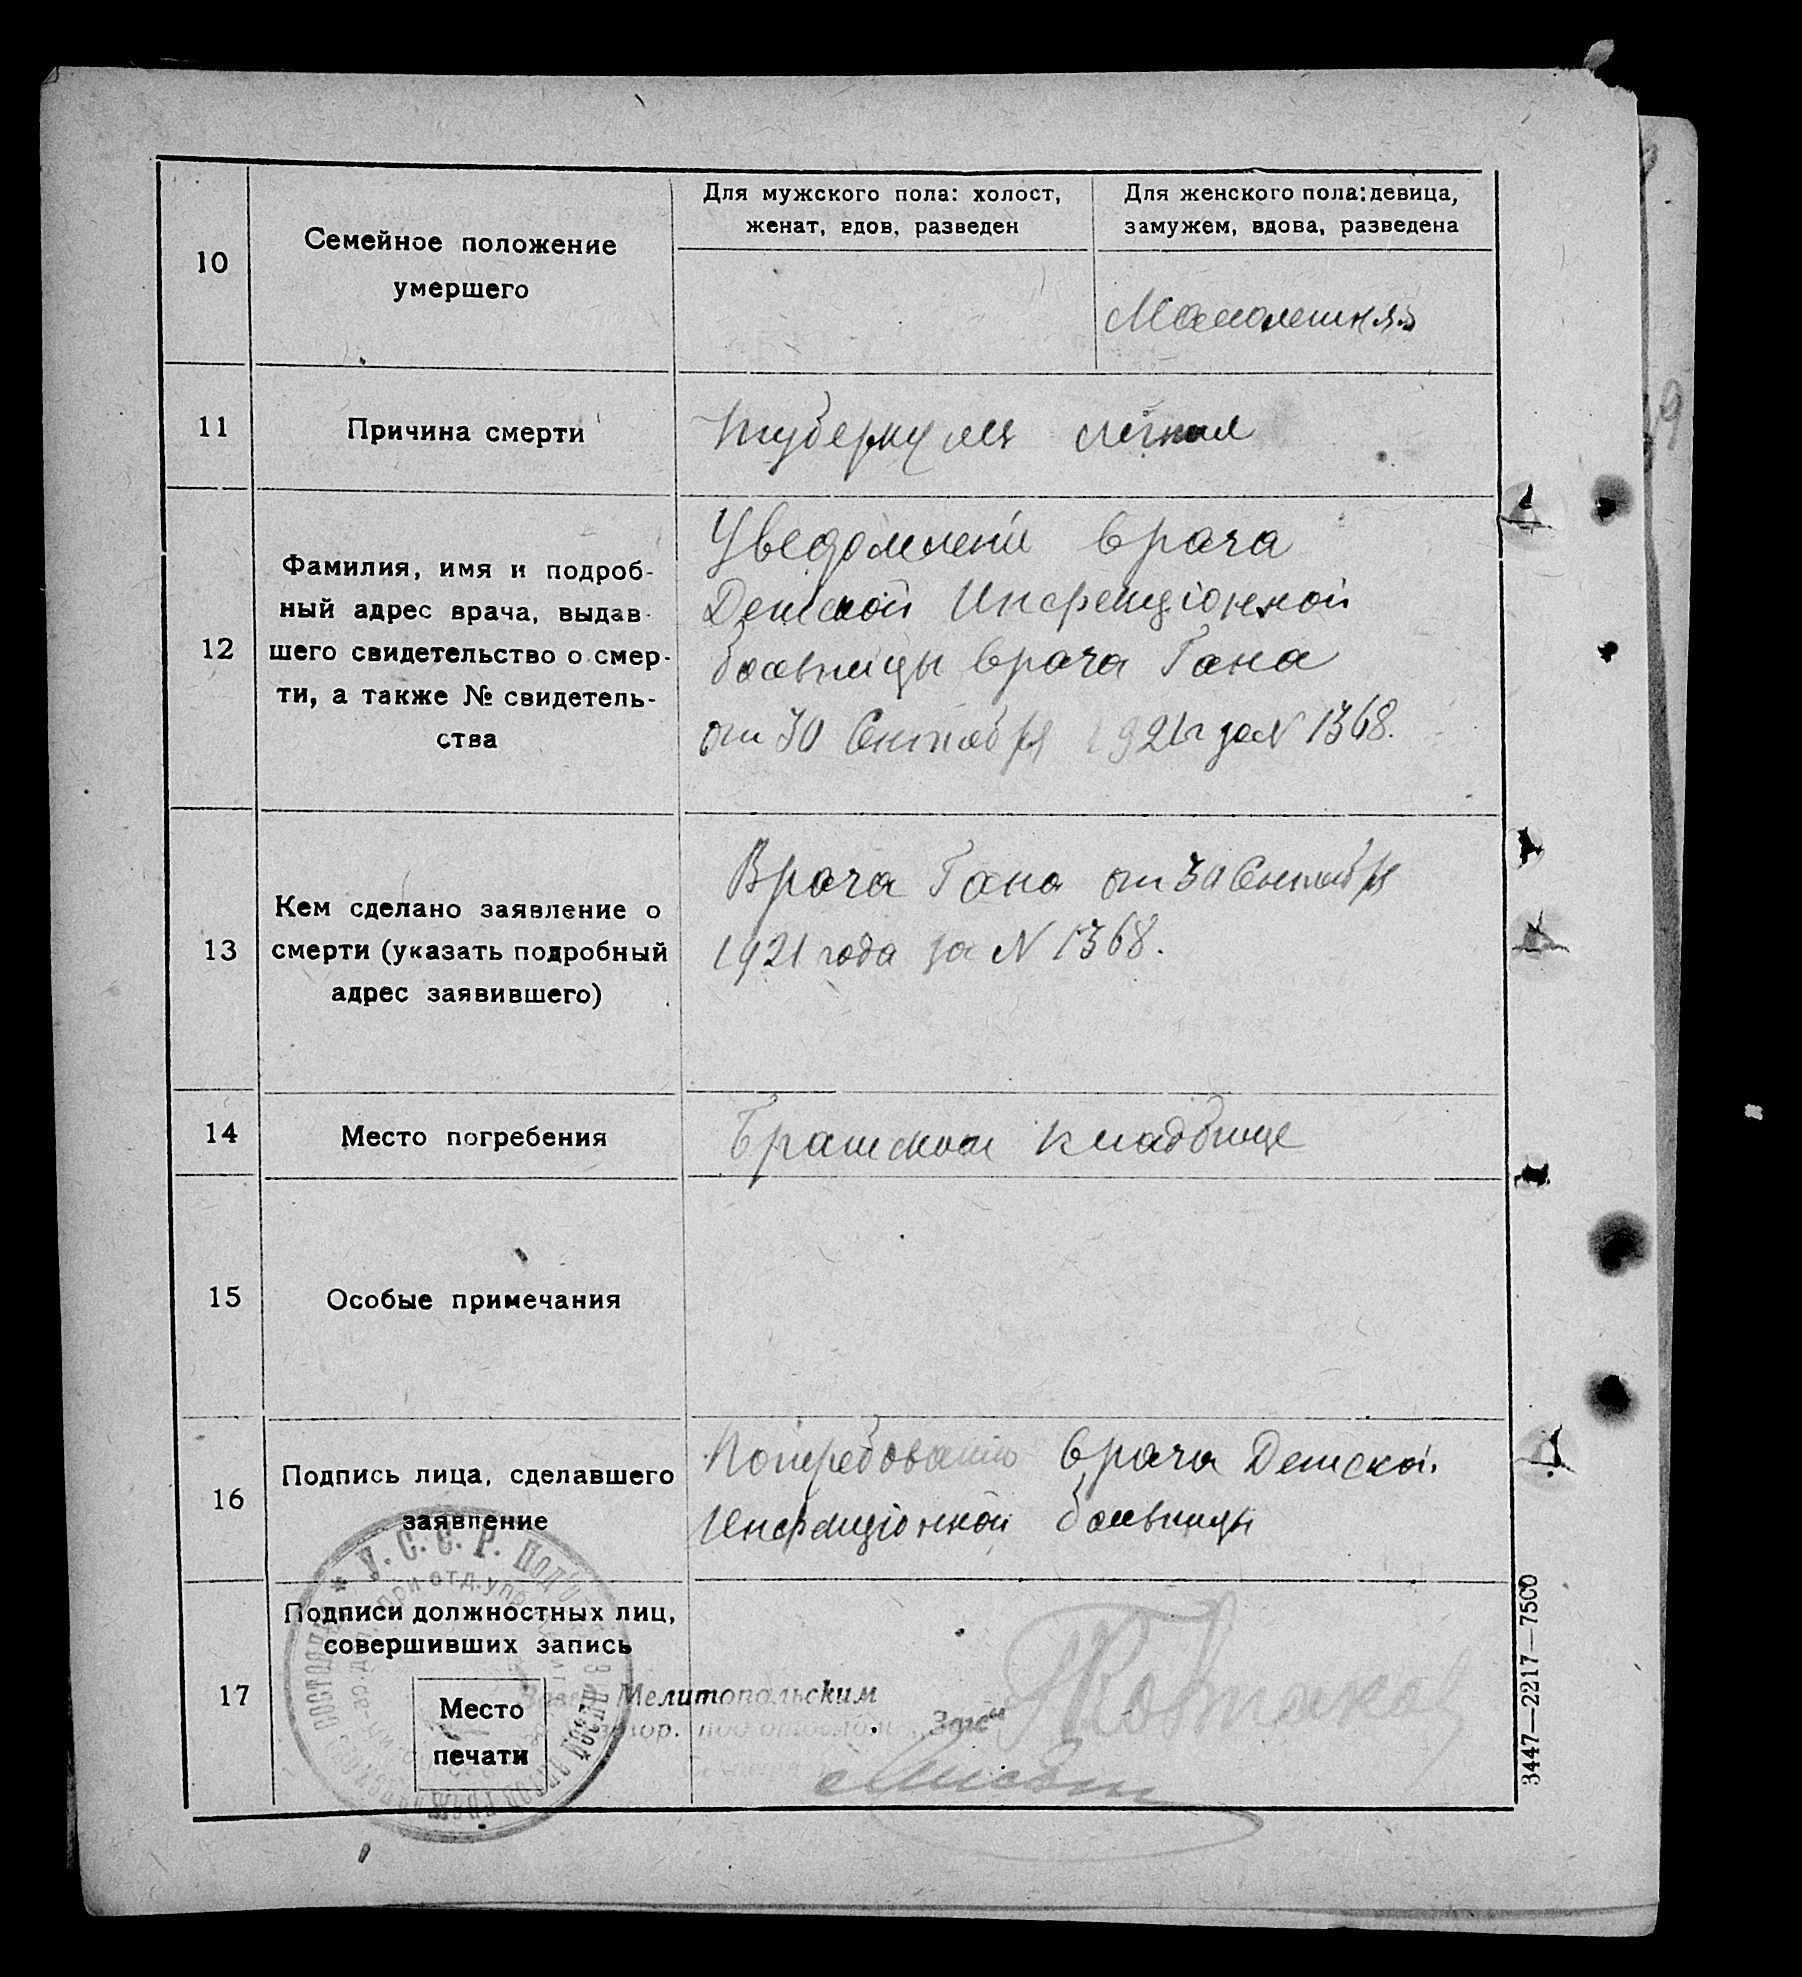 Для мужского пола: холост,
женат, вдов, разведен
Для женского пола: девица,
замужем, вдова, разведена
10
Семейное положение
умершего
Малолетняя
11
Причина смерти
туберкулез легких
12
Фамилия, имя и подроб-
ный адрес врача, выдав-
шего свидетельство о смер-
ти, а также № свидетель-
ства
Уведомлени врача
Детской Инфекціонной
больницы врача Гана
от 30 Сентября 1921 г за N 1368.
13
Кем сделано заявление о
смерти (указать подробный
адрес заявившего)
Врача Гана от 30 Сентября
1921 года за N 1368.
14
Место погребения
Братском кладбище
15
Особые примечания
16
Подпись лица, сделавшего
заявление
врача Детской
Инфекціонной больницы
17
Подписи должностных лиц,
совершивших запись
Место
печати
У.С.С.Р.
при отд. упр.
Мелитопольским
гор. подотделом „Загс“
3447—2217—7500